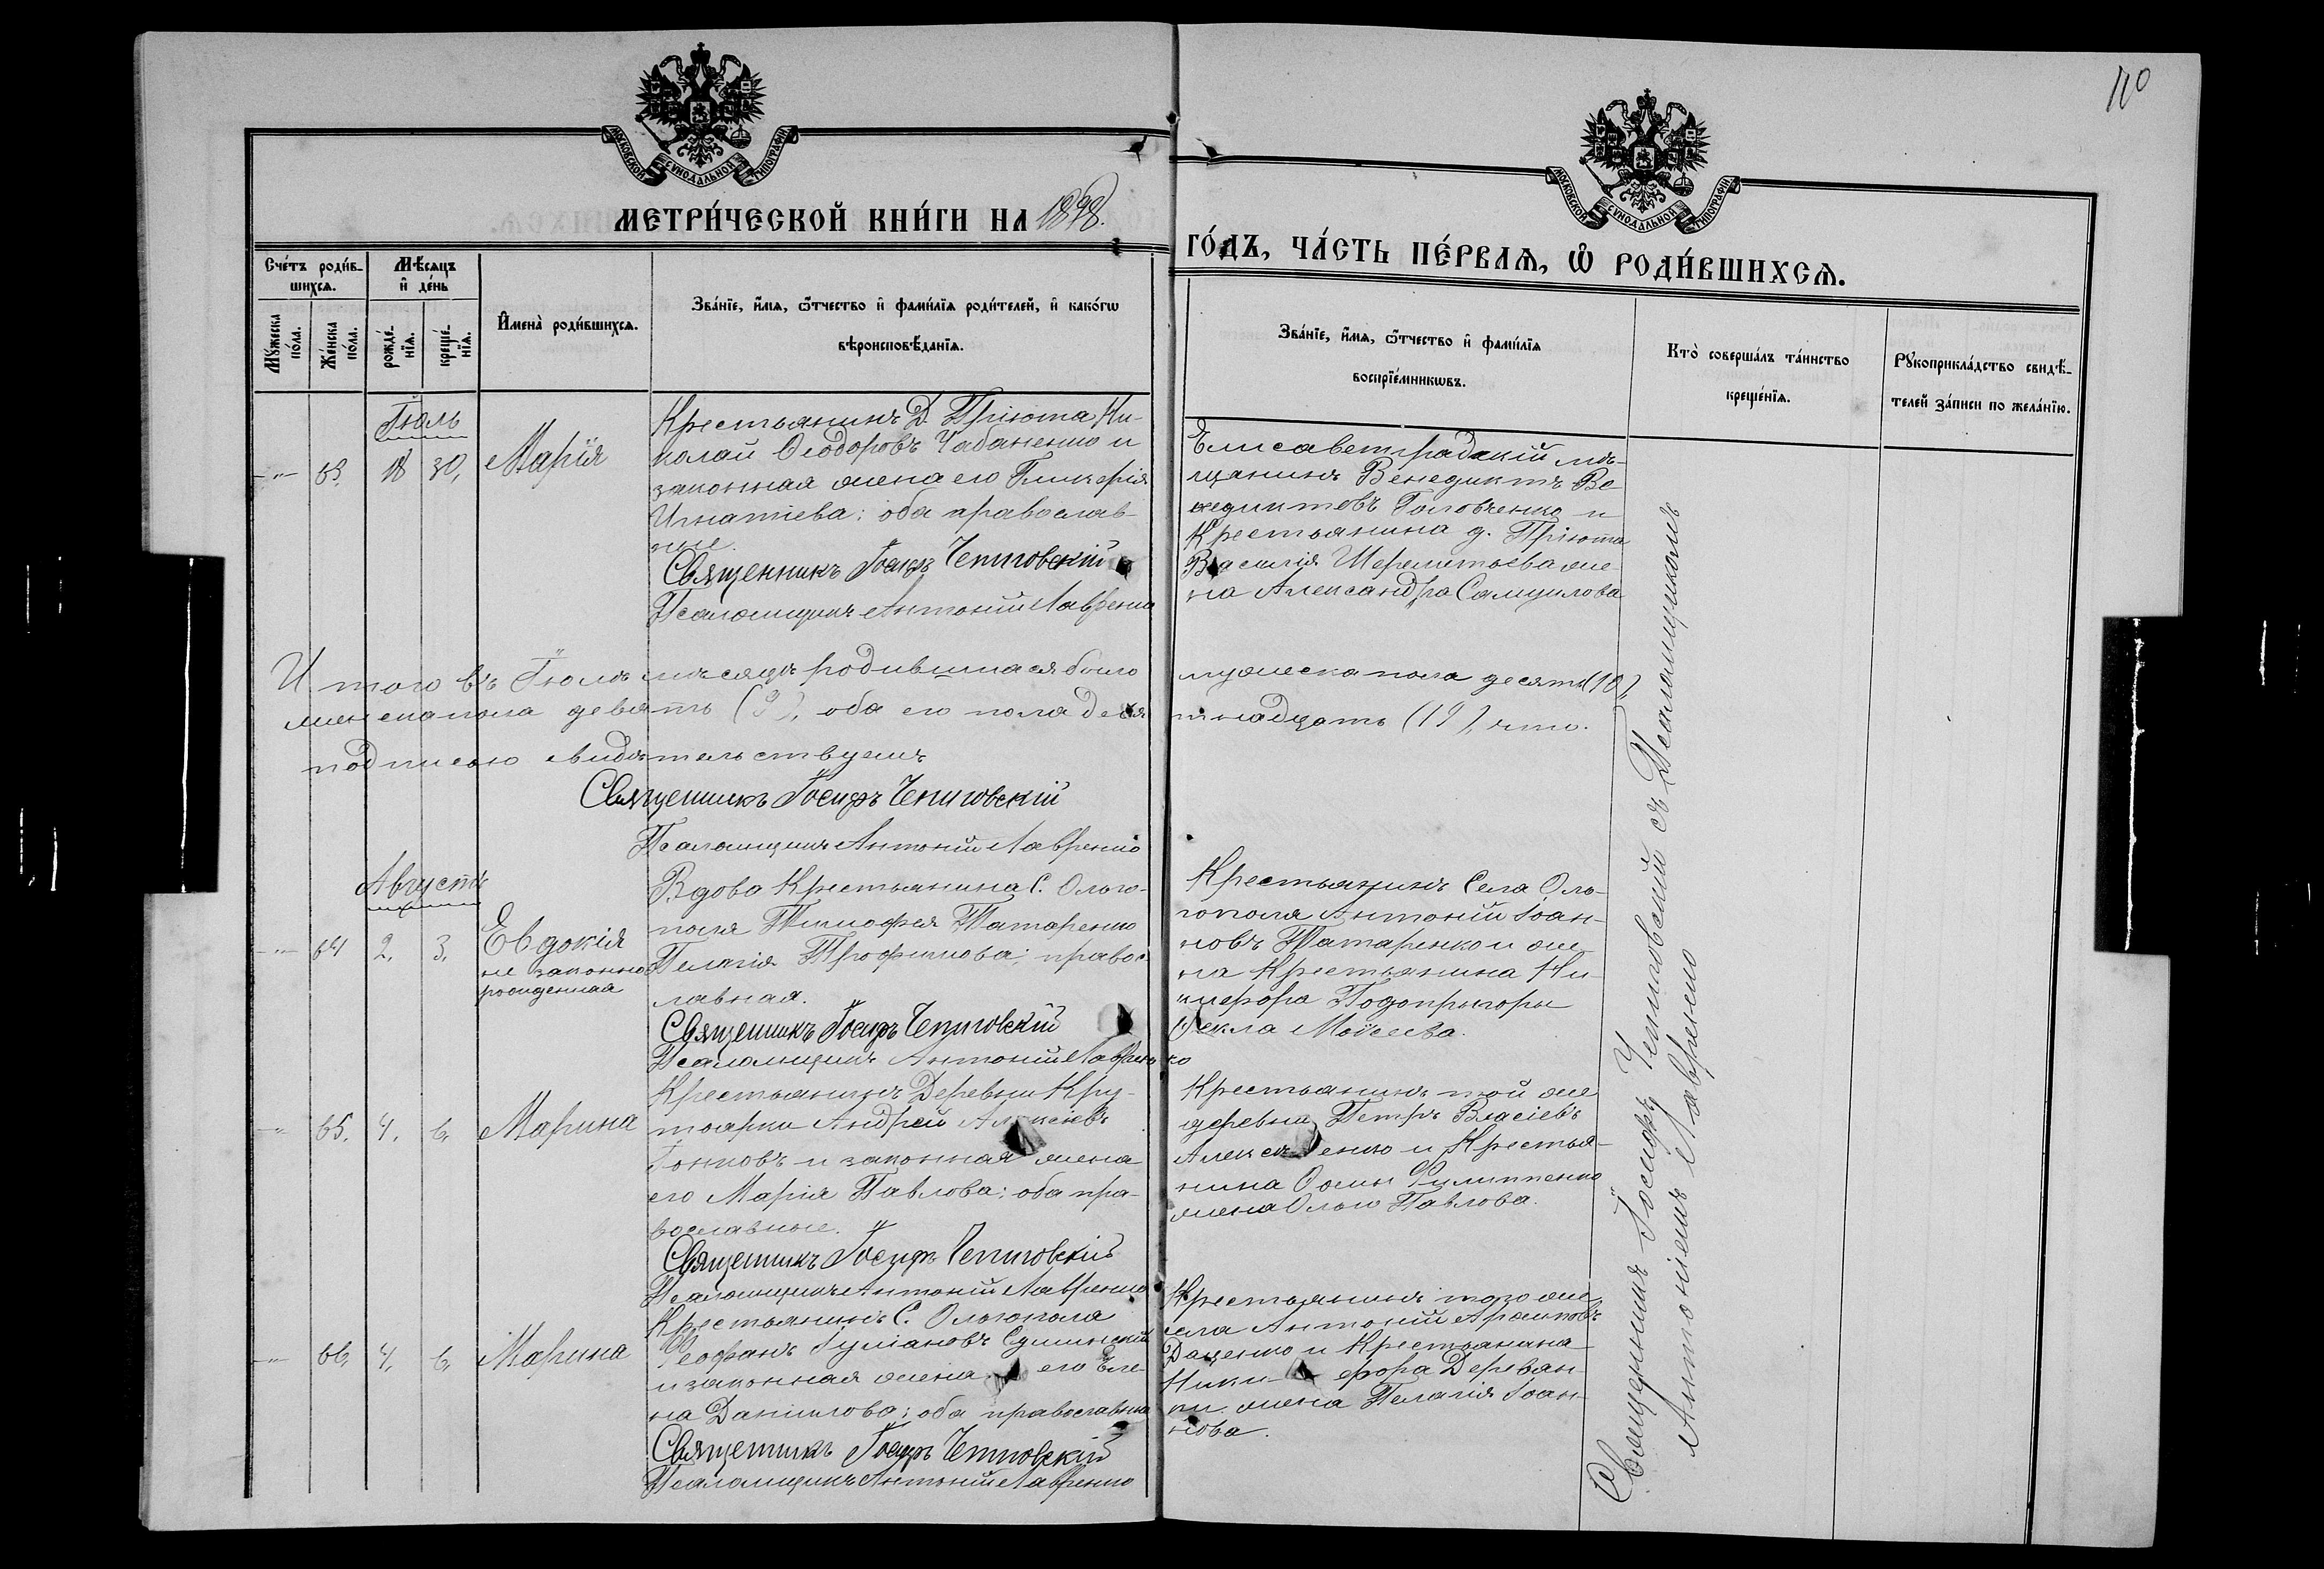 110
МОСКОВСКОЙ СѴНОДАЛЬНОЙ ТИПОГРАФІИ
МОСКОВСКОЙ СѴНОДАЛЬНОЙ ТИПОГРАФІИ
МЕТРИ́ЧЕСКОЙ КНИ́ГИ НА 1898.
ГО́ДЪ, ЧА́СТЬ ПЕ́РВАѦ, Ѡ҆ РОДИ́ВШИХСѦ.
Сче́тъ роди́в-
шихсѧ.
Мꙋ́жеска по́ла.
Же́нска по́ла.
Мѣ́сѧцъ
и҆ де́нь
рожде́-
нїѧ.
креще́-
нїѧ.
И҆мена̀ роди́вшихсѧ.
Зва́нїе, и҆́мѧ, ѻ҆́тчество и҆ фами́лїѧ роди́телей, и҆ како́гѡ
вѣроисповѣ́данїѧ.
Зва́нїе, и҆́мѧ, ѻ҆́тчество и҆ фами́лїѧ
воспрїе́мникѡвъ.
Кто̀ соверша́лъ та́инство
креще́нїѧ.
Рꙋкоприкла́дство свидѣ́-
телей за́писи по жела́нїю.
Іюль
-"- 63. 18 30, Марія
Крестьянинъ Д. Пріюта Ни-
колай Ѳеодоровъ Чабаненко и
законная жена его Гликерія
Игнатіева; оба православ-
ные.
Священникъ Іосифъ Чепиговскій
Псаломщикъ Антоній Лавренко
Елисаветградскій мѣ-
щанинъ Венедиктъ Ве-
недиктовъ Головченко и
Крестьянина д. Пріюта
Василія Шереметьева же-
на Александра Самуилова
Итого въ Іюлѣ мѣсяцѣ родившихся было мужеска пола десять (10),
женска пола девять (9), обаего пола девятнадцать (19), что.
подписью свидѣтельствуемъ
Священникъ Іосифъ Чепиговскій
Псаломщикъ Антоній Лавренко
Августъ
-"- 64 2. 3. Евдокія
не законно
рожденная
Вдова Крестьянина С. Ольго-
поля Тимофея Татаренко
Пелагія Трофимова; правос-
лавная.
Священникъ Іосифъ Чепиговскій
Псаломщикъ Антоній Лавренко
Крестьянинъ Села Оль-
гополя Антоній Іоан-
новъ Татаренко и же-
на Крестьянина Ни-
кифора Подопригоры
Ѳекла Моѵсеева.
-"- 65. 4. 6. Марина
Крестьянинъ Деревни Кру-
тоярки Андрей Алексіевъ
Гонковъ и законная жена
его Марія Павлова; оба пра-
вославные.
Священникъ Іосифъ Чепиговскій
Псаломщикъ Антоній Лавренко
Крестьянинъ той же
деревни Петръ Власіевъ
и Крестья-
нина Ѳомы Филиппенко
жена Ольга Павлова.
-"- 66. 4. 6. Марина
Крестьянинъ С. Ольгополя
Ѳеофанъ Іуліановъ
и законная жена его Еле-
на Даніилова; оба православные
Священникъ Іосифъ Чепиговскій
Псаломщикъ Антоній Лавренко
Крестьянинъ того же
села Антоній
Даценко и Крестьянина
Никифора Деревян-
ки жена Пелагія Іоан-
нова.
Священникъ Іосифъ Чепиговскій съ Псаломщикомъ
Антоніемъ Лавренко